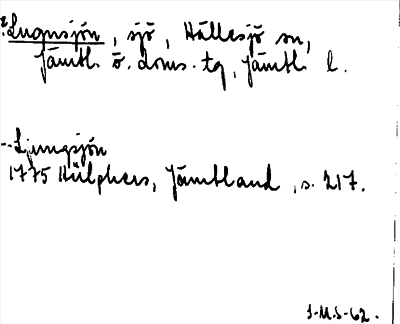 Lugnsjön, sjö, Hällesjö sn,
Jämtl. ö. doms. tg, Jämtl. l.
-- Ljungsjön
1775 Hülphers, Jämtland, s. 217.
J-M.S-62.